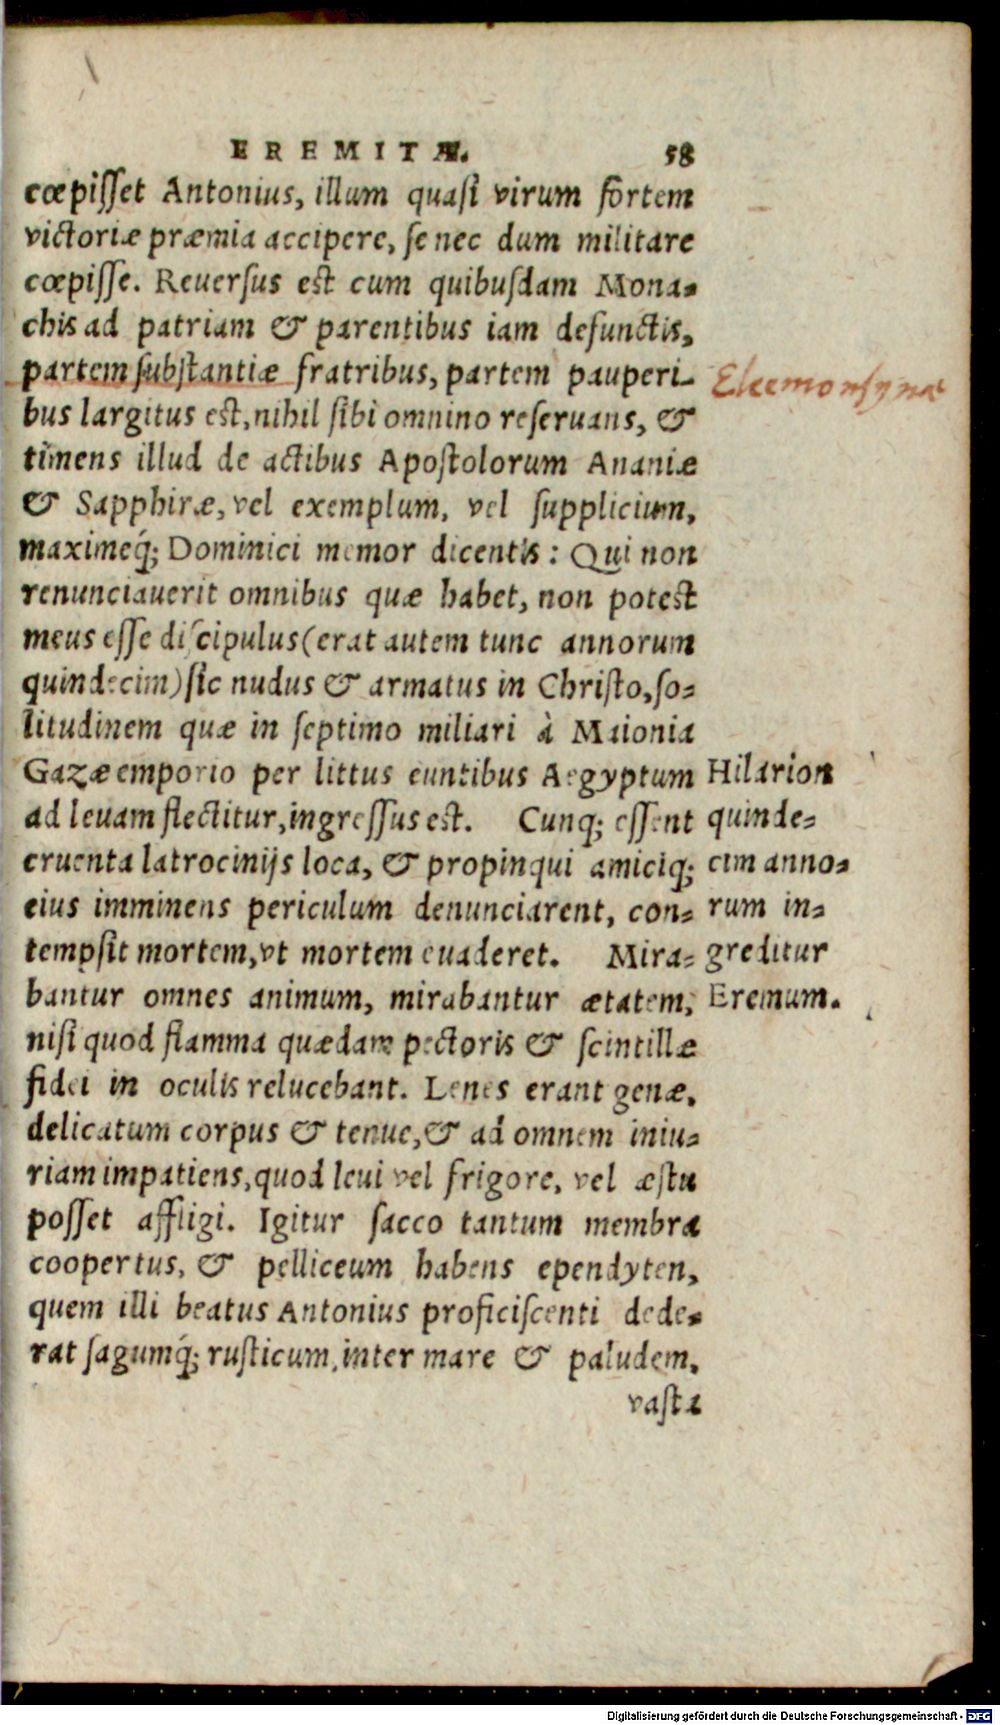 EREMITÆ. 58
cœpiſſet Antonius, illum quaſi virum fortem
victoriæ præmia accipere, ſe nec dum militare
cœpiſſe. Reuerſus est cum quibuſdam Mona-
chis ad patriam & parentibus iam defunctis,
partem ſubſtantiæ fratribus, partem pauperi-
Eleemonſynæ
bus largitus est, nihil ſibi omnino reſeruans, &
timens illud de actibus Apoſtolorum Ananiæ
& Sapphiræ, vel exemplum, vel ſupplicium,
maximeq́; Dominici memor dicentis: Qui non
renunciauerit omnibus quæ habet, non potest
meus eſſe diſcipulus (erat autem tunc annorum
quindecim) ſic nudus & armatus in Chriſto, ſo-
litudinem quæ in ſeptimo miliari à Maionia
Gazæ emporio per littus euntibus Aegyptum
ad leuam flectitur, ingreſſus est. Cunq; eſſent
cruenta latrocinijs loca, & propinqui amiciq;
eius imminens periculum denunciarent, con-
tempſit mortem, vt mortem euaderet. Mira-
bantur omnes animum, mirabantur ætatem,
Hilarion
quinde-
cim anno-
rum in-
greditur
Eremum.
niſi quod flamma quædam pectoris & ſcintillæ
fidei in oculis relucebant. Lenes erant genæ,
delicatum corpus & tenue, & ad omnem iniu-
riam impatiens, quod leui vel frigore, vel æſtu
poſſet affligi. Igitur ſacco tantum membra
coopertus, & pelliceum habens ependyten,
quem illi beatus Antonius proficiſcenti dede-
rat ſagumq́; ruſticum, inter mare & paludem,
vaſta
Digitalisierung gefördert durch die Deutsche Forschungsgemeinschaft - DFG